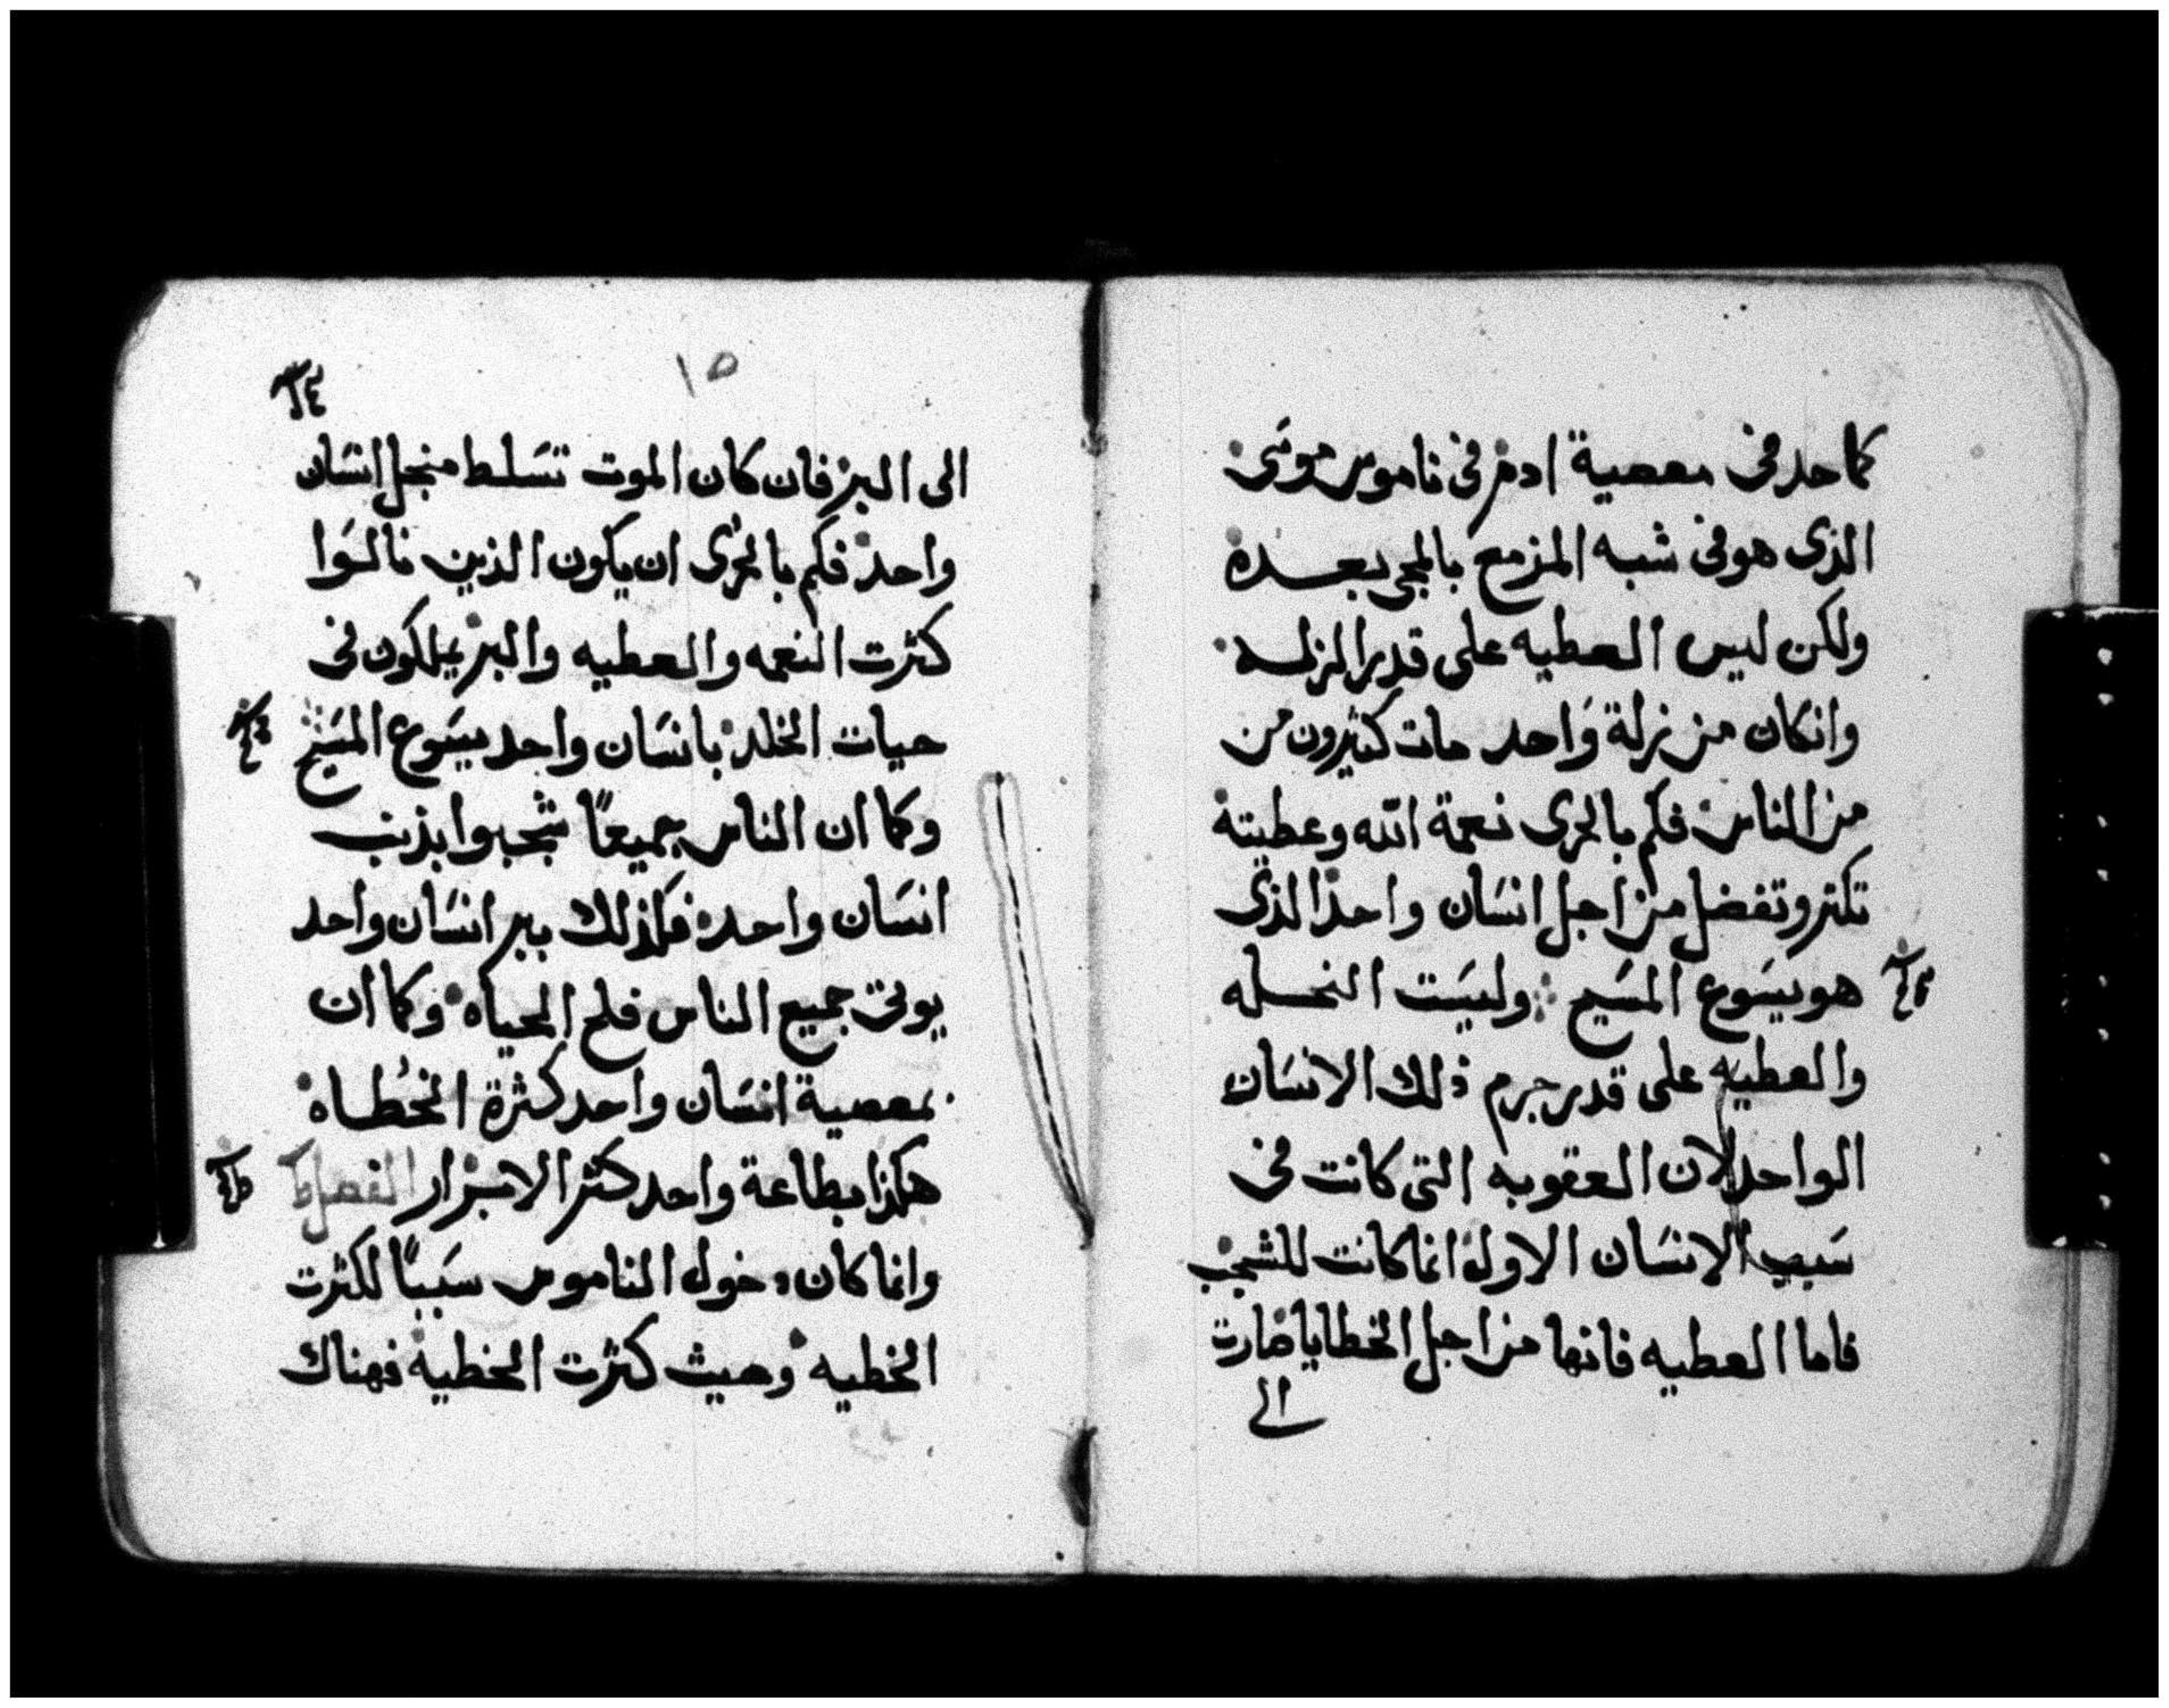 كما حد في معصية ادم في ناموس موسَى
الذى هو فى شبه المزمع بالمجى بعده
ولكن ليس العطيه على قدر الزله
وانكان من زلة وَاحد مات كثيرون من
من الناس فكم بالحرى نعمة الله وعطيتة
تكثر وتفضل من اجل انسَان واحد الذى
هو يسَوع المسَيح وليسَت النحله
والعطيه على قدر جرم ذلك الانسَان
الواحد لان العقوبه التى كانت فى
سَبب الانسَان الاول انما كانت للشجب
فاما العطيه فانها من اجل الخطايا صارت
الى
١٥
الى البر فان كان الموت تسَلط منجل انسَان
واحد فكم بالحرى ان يكون الذين نالوَا
كثرت النعمه والعطيه والبر يملكون فى
حيات الخلد بانسَان واحد يسَوع المسَيح
وكما ان الناس جميعًا شجبوا بذنب
انسَان واحد فكذلك ببر انسَان واحد
يوتى جميع الناس فلج الحياه وكما ان
بمعصية انسَان واحد كثرة الخُطاه
هكذا بطاعة واحد كثر الابرار الفصل
وانما كان دخول الناموس سَببًا لكثرت
الخطيه وحيث كثرت الخطية فهناك